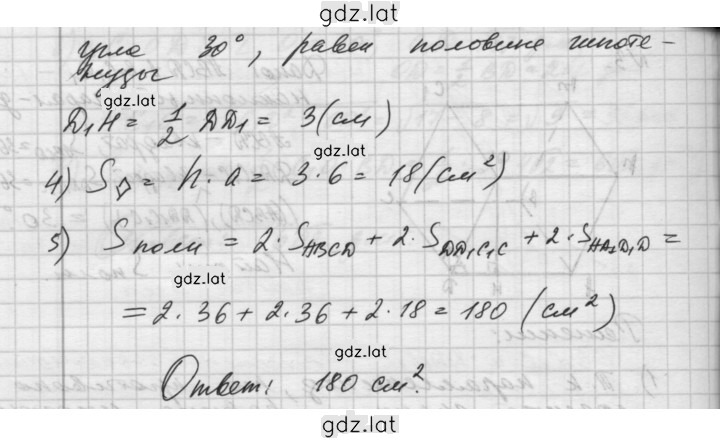 gdz.lat
угла 30°, равен половине гипоте-
нузы
gdz.lat
D₁H = 1/2 DD₁ = 3 (см)
gdz.lat
4) S◇ = h · a = 3 · 6 = 18 (см²)
5) Sполн = 2 · SABCD + 2 · SDD₁C₁C + 2 · SAA₁D₁D =
gdz.lat
= 2 · 36 + 2 · 36 + 2 · 18 = 180 (см²)
gdz.lat
Ответ: 180 см².
gdz.lat
gdz.lat